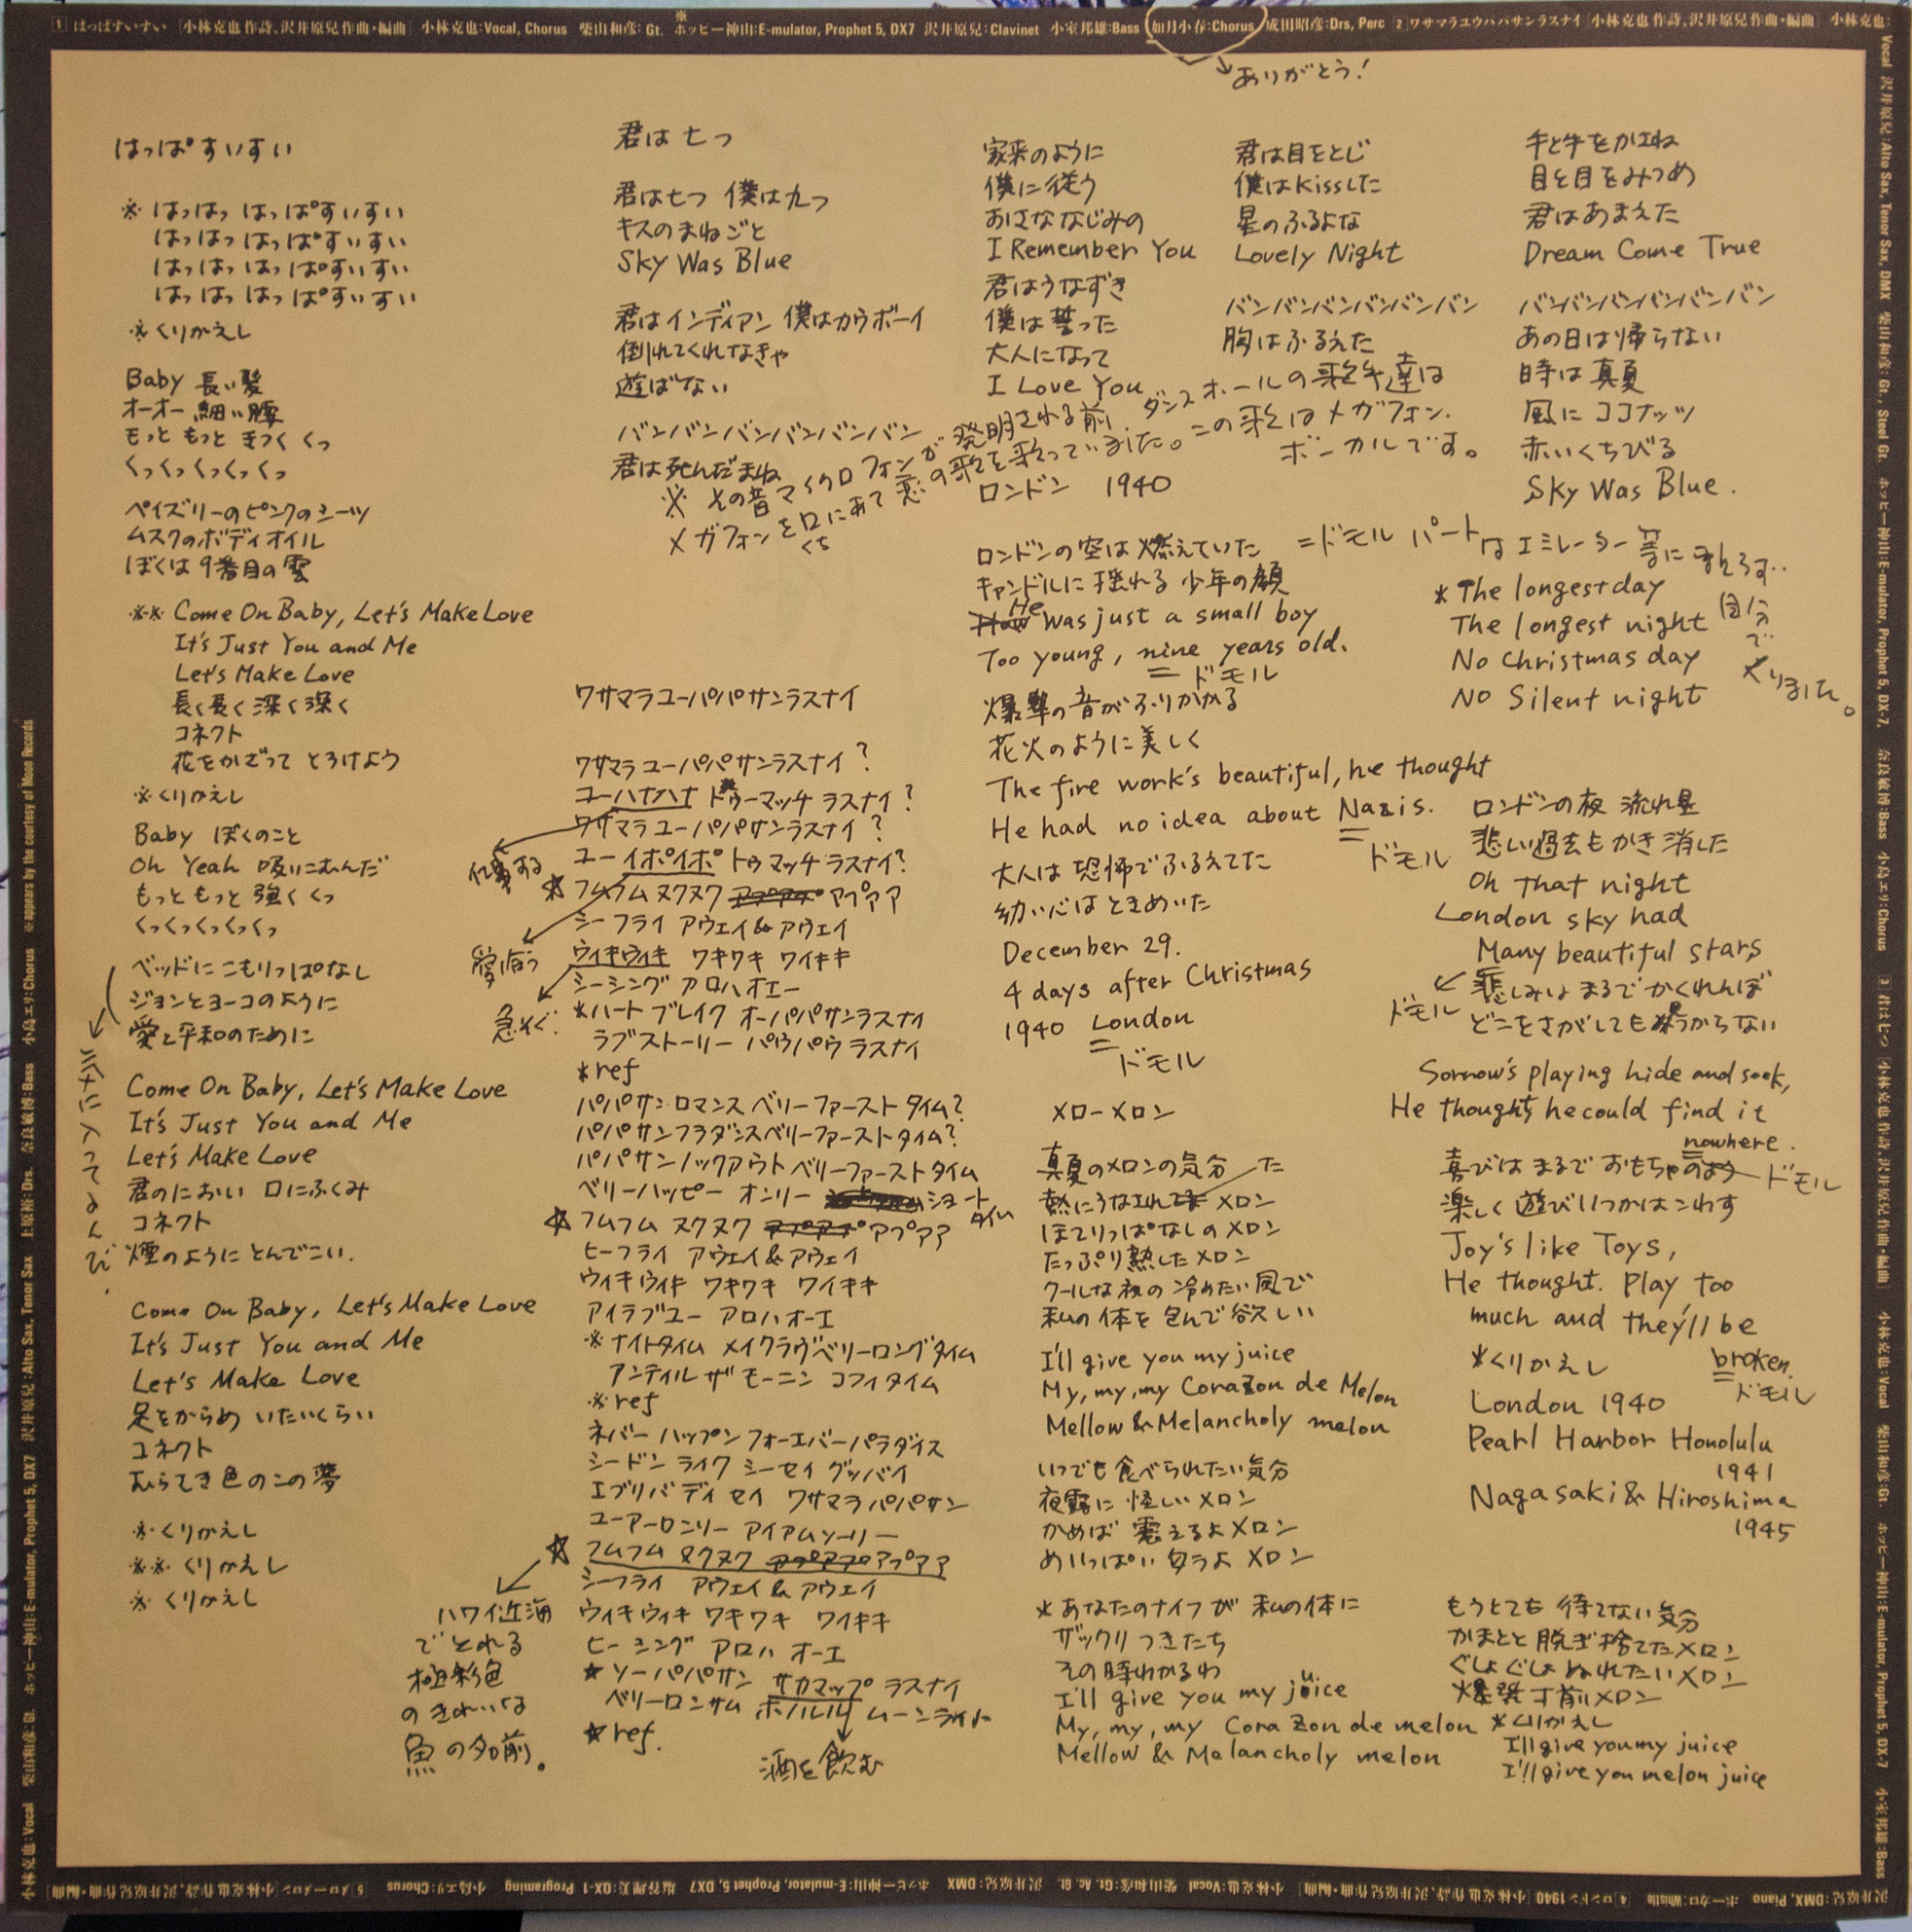 [1] はっぱすいすい [小林克也 作詩、沢井原兒 作曲・編曲] 小林克也:Vocal, Chorus 柴山和彦: Gt. ※ホッピー神山:E-mulator, Prophet 5, DX7 沢井原兒:Clavinet 小室邦雄:Bass 如月小春:Chorus 成田昭彦:Drs, Perc [2] ワサマラユウハパサンラスナイ [小林克也 作詩、沢井原兒 作曲・編曲] 小林克也:
Vocal 沢井原兒:Alto Sax, Tenor Sax, DMX 柴山和彦: Gt., Steel Gt. ホッピー神山:E-mulator, Prophet 5, DX-7, 奈良敏博:Bass 小島エリ:Chorus [3] 君は七つ [小林克也 作詩、沢井原兒 作曲・編曲] 小林克也:Vocal 柴山和彦:Gt. ホッピー神山:E-mulator, Prophet 5, DX-7 小室邦雄:Bass
沢井原兒:DMX, Piano ホーカロ:Whistle [4] ロンドン1940 [小林克也 作詩、沢井原兒 作曲・編曲] 小林克也:Vocal 柴山和彦:Gt. Ac. Gt. 沢井原兒:DMX ホッピー神山:E-mulator, Prophet 5, DX7 QX-1 Programing 小島エリ:Chorus [5] メローメロン [小林克也 作詩、沢井原兒 作曲・編曲]
小林克也:Vocal 柴山和彦:Gt. ホッピー神山:E-mulator, Prophet 5, DX7 沢井原兒:Alto Sax, Tenor Sax 上原裕:Drs. 奈良敏博:Bass 小島エリ:Chorus ※appears by the courtesy of Moon Records
ありがとう!
はっぱすいすい
※ はっはっ はっぱすいすい
はっはっ はっぱすいすい
はっはっ はっぱすいすい
はっはっ はっぱすいすい
※くりかえし
Baby 長い髪
オーオー 細い腰
もっと もっと きつく くっ
くっくっくっくっくっ
ペイズリーのピンクのシーツ
ムスクのボディオイル
ぼくは9番目の雲
※※ Come On Baby, Let's Make Love
It's Just You and Me
Let's Make Love
長く長く深く深く
コネクト
花をかざって とろけよう
※くりかえし
Baby ぼくのこと
Oh Yeah 吸いこむんだ
もっと もっと 強く くっ
くっくっくっくっくっ
ベッドに こもりっぱなし
ジョンとヨーコのように
愛と平和のために
Come On Baby, Let's Make Love
It's Just You and Me
Let's Make Love
君のにおい 口にふくみ
コネクト
煙のように とんでこい.
Come On Baby, Let's Make Love
It's Just You and Me
Let's Make Love
足をからめ いたいくらい
コネクト
むらさき色のこの夢
※くりかえし
※※ くりかえし
※ くりかえし
君は七つ
君は七つ 僕は九つ
キスのまねごと
Sky Was Blue
君はインディアン 僕はカウボーイ
倒れてくれなきゃ
遊ばない
バンバンバンバンバンバンバン
君は死んだまね
家来のように
僕に従う
おさななじみの
I Remember You
君はうなずき
僕は誓った
大人になって
I Love You
君は目をとじ
僕はKissした
星のふるよな
Lovely Night
バンバンバンバンバンバン
胸はふるえた
手と手をかさね
目と目をみつめ
君はあまえた
Dream Come True
バンバンバンバンバンバン
あの日は帰らない
時は真夏
風にココナッツ
赤いくちびる
Sky Was Blue.
※ その昔マイクロフォンが発明される前、ダンスホールの歌手達は
メガフォンを口にあて恋の歌を歌っていました。この歌はメガフォン.
くち
ボーカルです。
ワサマラユーパパサンラスナイ
ワサマラユーパパサンラスナイ?
ユーハナハナ トゥーマッチ ラスナイ?
ワサマラユーパパサンラスナイ?
ユーイポイポ トゥマッチラスナイ?
☆フムフム ヌクヌク アプアア
シーフライ アウェイ&アウェイ
ウィキウィキ ワキワキ ワイキキ
シーシング アロハオエー
*ハートブレイク オーパパサンラスナイ
ラブストーリー パウパウ ラスナイ
*ref
パパサンロマンスベリーファーストタイム?
パパサンフラダンスベリーファーストタイム?
パパサンノックアウト ベリーファーストタイム
ベリーハッピー オンリー ショートタイム
☆フムフム ヌクヌク アプアア
ヒーフライ アウェイ&アウェイ
ウィキウィキ ワキワキ ワイキキ
アイラブユー アロハオーエ
※ナイトタイム メイクラヴベリーロングタイム
アンティル ザ モーニン コフィタイム
※ref
ネバーハップンフォーエバーパラダイス
シードンライク シーセイ グッバイ
エブリバディセイ ワサマラパパサン
ユーアーロンリー アイアムソーリー
☆フムフム ヌクヌク アプアア
シーフライ アウェイ&アウェイ
ウィキウィキ ワキワキ ワイキキ
ヒーシング アロハ オーエ
★ソーパパサン サカマップ ラスナイ
ベリーロンサム ホノルル ムーンライト
★ref.
仕事する
愛し合う
急そぐ.
ハワイ近海
でとれる
極彩色
のきれいな
魚の名前。
酒を飲む
ロンドン 1940
ロンドンの空は燃えていた
キャンドルに揺れる少年の顔
He was just a small boy
Too young, nine years old.
ドモル
爆撃の音がふりかかる
花火のように美しく
The fire work's beautiful, he thought
He had no idea about Nazis.
ドモル
大人は恐怖でふるえてた
幼い心はときめいた
December 29.
4 days after Christmas
1940 London
ドモル
=ドモル パートはエミレーター等にまえろす..
*The longest day
The longest night
No Christmas day
No Silent night
ロンドンの夜 流れ星
悲しい過去もかき消した
Oh That night
London sky had
Many beautiful stars
ドモル
悲しみは まるでかくれんぼ
どこをさがしても見つからない
Sorrow's playing hide and seek,
He thought he could find it
nowhere.
喜びは まるで おもちゃ
ドモル
楽しく遊びいつかはこわす
Joy's like Toys,
He thought. Play too
much and they'll be
broken.
ドモル
*くりかえし
London 1940
Pearl Harbor Honolulu
1941
Nagasaki & Hiroshima
1945
メローメロン
真夏のメロンの気分
熱にうなされた メロン
ほてりっぱなしのメロン
たっぷり熟したメロン
クールな夜の冷めたい風で
私の体を包んで欲しい
I'll give you my juice
My, my, my Corazon de Melon
Mellow & Melancholy melon
いつでも食べられたい気分
夜露に怪しいメロン
かめば震えるよメロン
めいっぱい匂うよメロン
*あなたのナイフが私の体に
ザックリつきたち
その時わかるわ
I'll give you my juice
My, my, my Corazon de melon
Mellow & Melancholy melon
もうとても 待てない気分
かまとと脱ぎ捨てたメロン
ぐしょぐしょぬれたいメロン
爆発寸前メロン
*くりかえし
I'll give you my juice
I'll give you melon juice